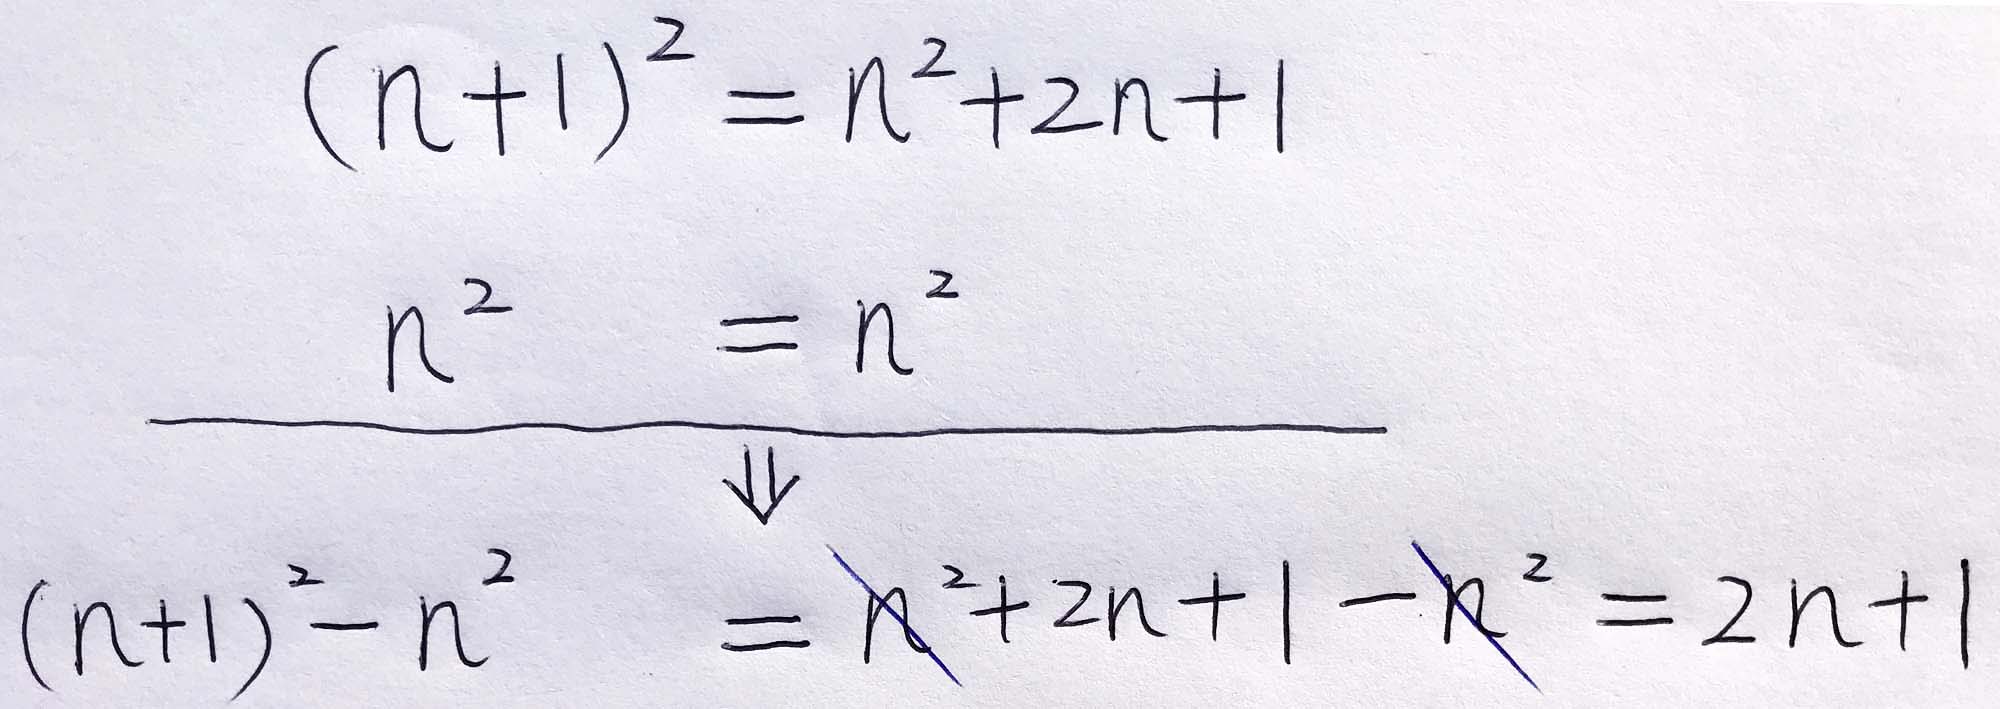 (n+1)² = n²+2n+1
n² = n²
⇓
(n+1)²−n² = n²+2n+1−n² = 2n+1